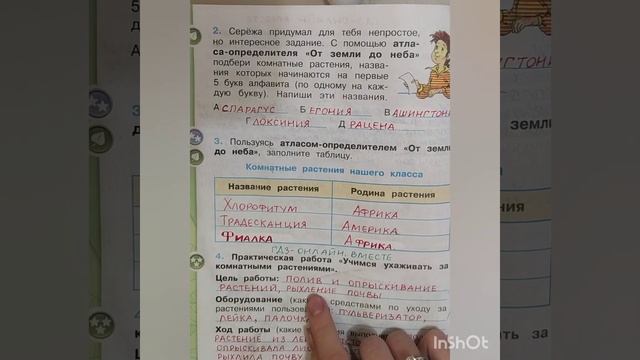 2. Серёжа придумал для тебя непростое,
но интересное задание. С помощью атла-
са-определителя «От земли до неба»
подбери комнатные растения, назва-
ния которых начинаются на первые
5 букв алфавита (по одному на каж-
дую букву). Напиши эти названия.
АСПАРАГУС БЕГОНИЯ ВАШИНГТОНИ
ГЛОКСИНИЯ ДРАЦЕНА
3. Пользуясь атласом-определителем «От земл
до неба», заполните таблицу.
Комнатные растения нашего класса
Название растения Родина растения
ХЛОРОФИТУМ АФРИКА
ТРАДЕСКАНЦИЯ АМЕРИКА
ФИАЛКА АФРИКА
ГДЗ-ОНЛАЙН, ВМЕСТЕ
4. Практическая работа «Учимся ухаживать за
комнатными растениями».
Цель работы: ПОЛИВ И ОПРЫСКИВАНИЕ
РАСТЕНИЙ, РЫХЛЕНИЕ ПОЧВЫ
Оборудование средствами по уходу за
растениями ПУЛЬВЕРИЗАТОР,
ЛЕЙКА, ПАЛОЧКА
Ход работы (какие
РАСТЕНИЕ ИЗ
ОПРЫСКИВАЛА
РЫХЛИЛА ПОЧВУ
InShOt